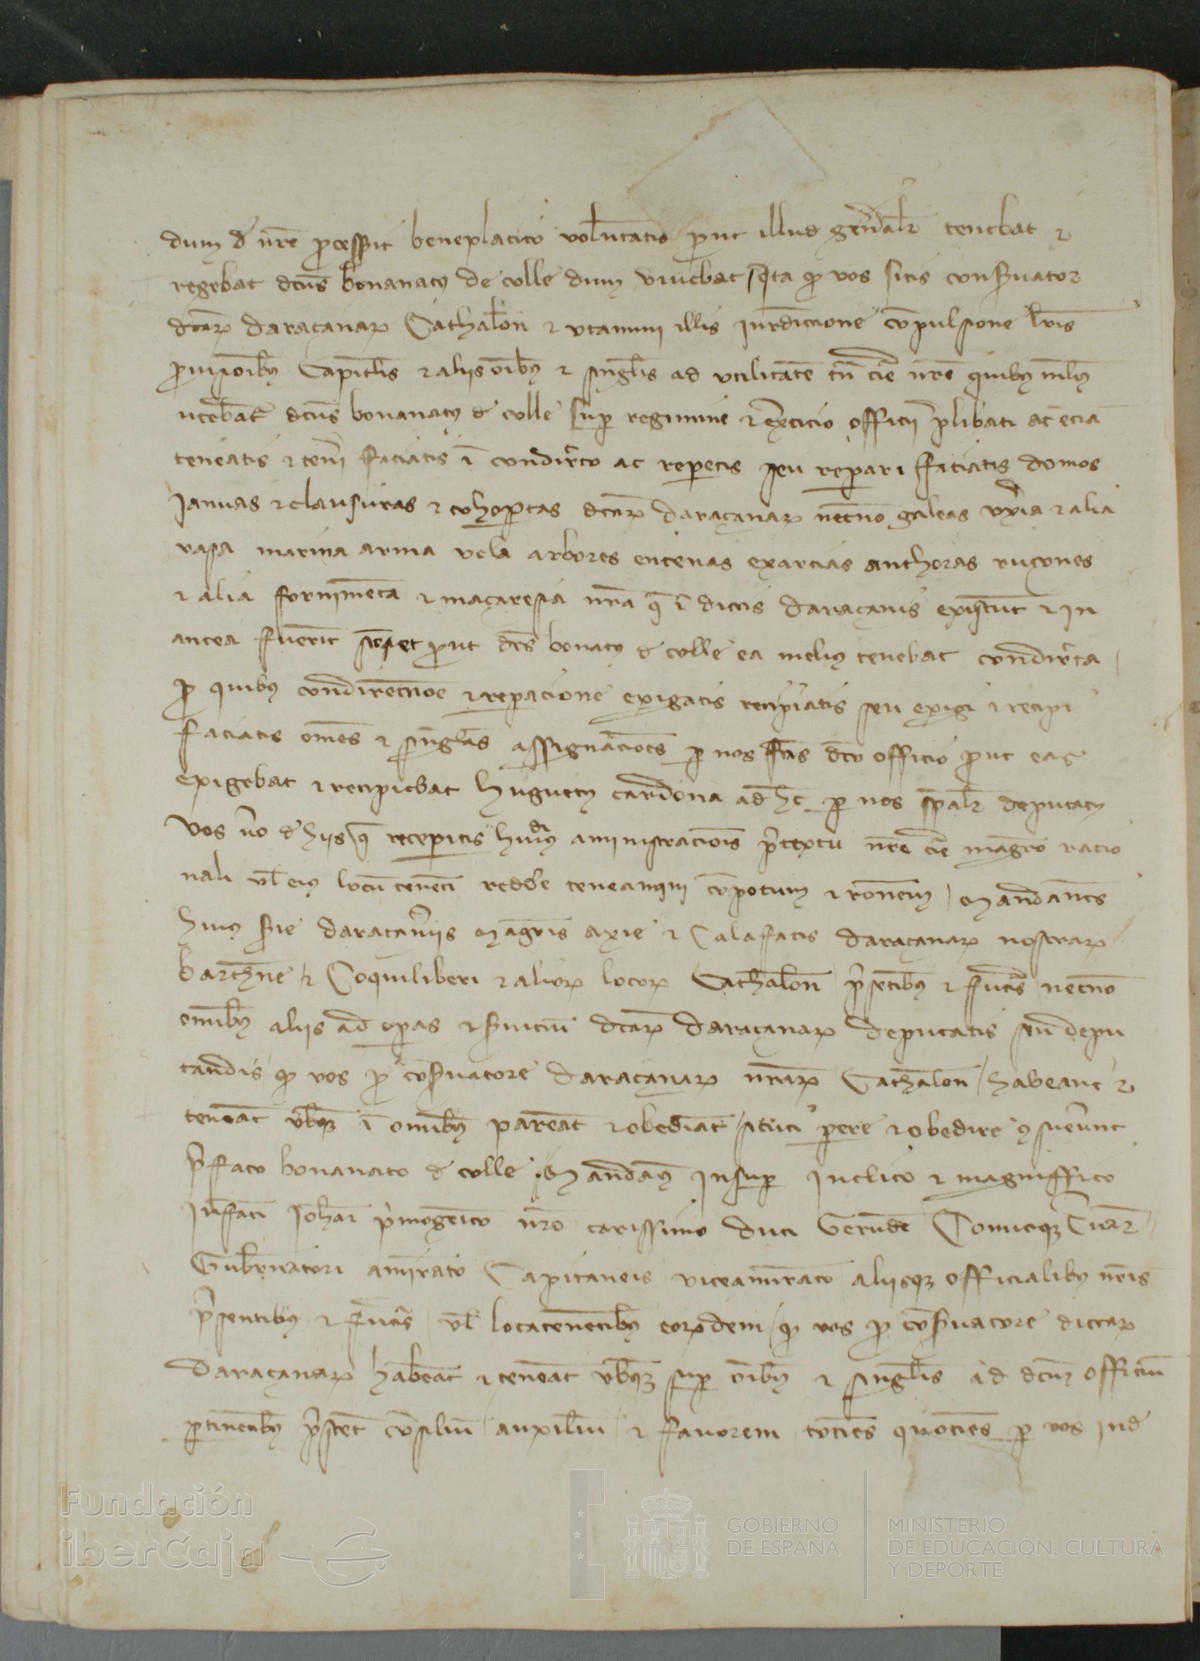 dum de nre processit beneplacito voluntatis prout illud gnralr tenebat et
regebat dcus bonanatus de colle dum vivebat Ita quod vos sitis conservator
dcarum daraçanarum Cathalon et utamini illis Jurediccione compulsione
provisionibus Capitlis et aliis oibus et singlis ad utilitatem cur nre quibus
utebat dcus bonanatus de colle super regimine et exercicio officii prelibati ac ecia
teneatis et teneri faciatis in condirecto ac reperetis seu reparari faciatis domos
Januas et clausuras et cohopertas dcarum daraçanarum necnon galeas uxeria et alia
vasa marina arma vela arbores entenas exarcias anchoras
et alia fornimenta et maçaresia nra que in dictis daraçanis existunt et in
antea fuerint prout dcs bonatus de colle ea melius tenebat condirecta
pro quibus condireccione et reparacione exigatis recipiatis seu exigi et recipi
faciatis omnes et singulas assignaciones per nos fcas dco officio prout eas
exigebat et recipiebat huguetus cardona ad hec per nos spalr deputatus
Vos vero de hiis que receperitis huius aministracionis pretextu nre cur magro racio
nali vel eius locum tenenti reddere teneamini compotum et ronem Mandantes
huius serie daraçaneriis Magris axie et Calafatis daraçanarum nostrarum
barchne et Coquiliberi et aliorum locorum Cathalon presentibus et futuris necnon
omnibus aliis ad operas et servicium dcarum daraçanarum deputatis seu depu
tandis quod vos pro conservatore daraçanarum nrarum Cathalon habeant et
teneant vobisque in omnibus pareant et obediant sicuti parere et obedire consueverunt
prefato bonanato de colle Mandamus insuper Inclito et magniffico
Infanti Johani primogenito nro carissimo duci Gerunde Comitique
Gubernatori amirato Capitaneis viceamirato aliisque officialibus nris
presentibus et futuris vel locatenentibus eorumdem quod vos pro conservatore dictarum
daraçanarum habeant et teneant vobisque super oibus et singulis ad dcum officium
pertinentibus prestent consilium auxilium et favorem tociens quociens per vos inde
Fundación
iberCaja
GOBIERNO
DE ESPAÑA
MINISTERIO
DE EDUCACIÓN, CULTURA
Y DEPORTE